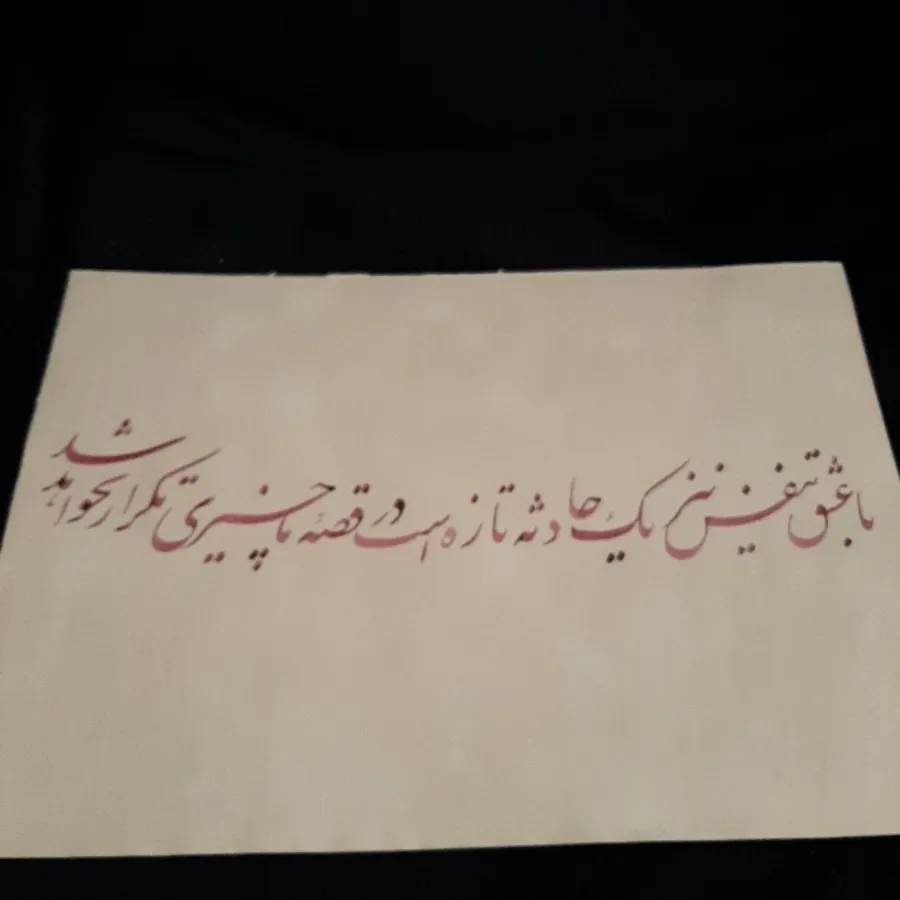 با عشق تنفس نیز یک حادثه تازه است در قصه ما چیزی تکرار نخواهد شد